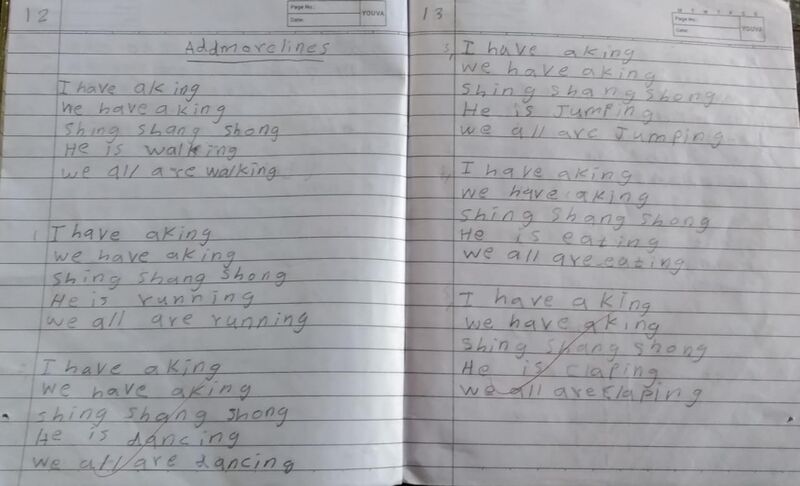 12
Page No.:
Date:
YOUVA
Addmorelines
I have aking
We have aking
Shing shang shong
He is walking
we all are walking
1 I have aking
we have aking
Shing shang shong
He is running
we all are running
I have aking
We have aking
shing shang shong
He is dancing
we all are dancing
13
M T W T F S S
Page No.:
Date:
YOUVA
3, I have aking
We have aking
shing shang shong
He is Jumping
we all are Jumping
4, I have aking
we have aking
shing shang shong
He is eating
We all are eating
5, I have a king
we have aking
shing shang shong
He is claping
we all are claping